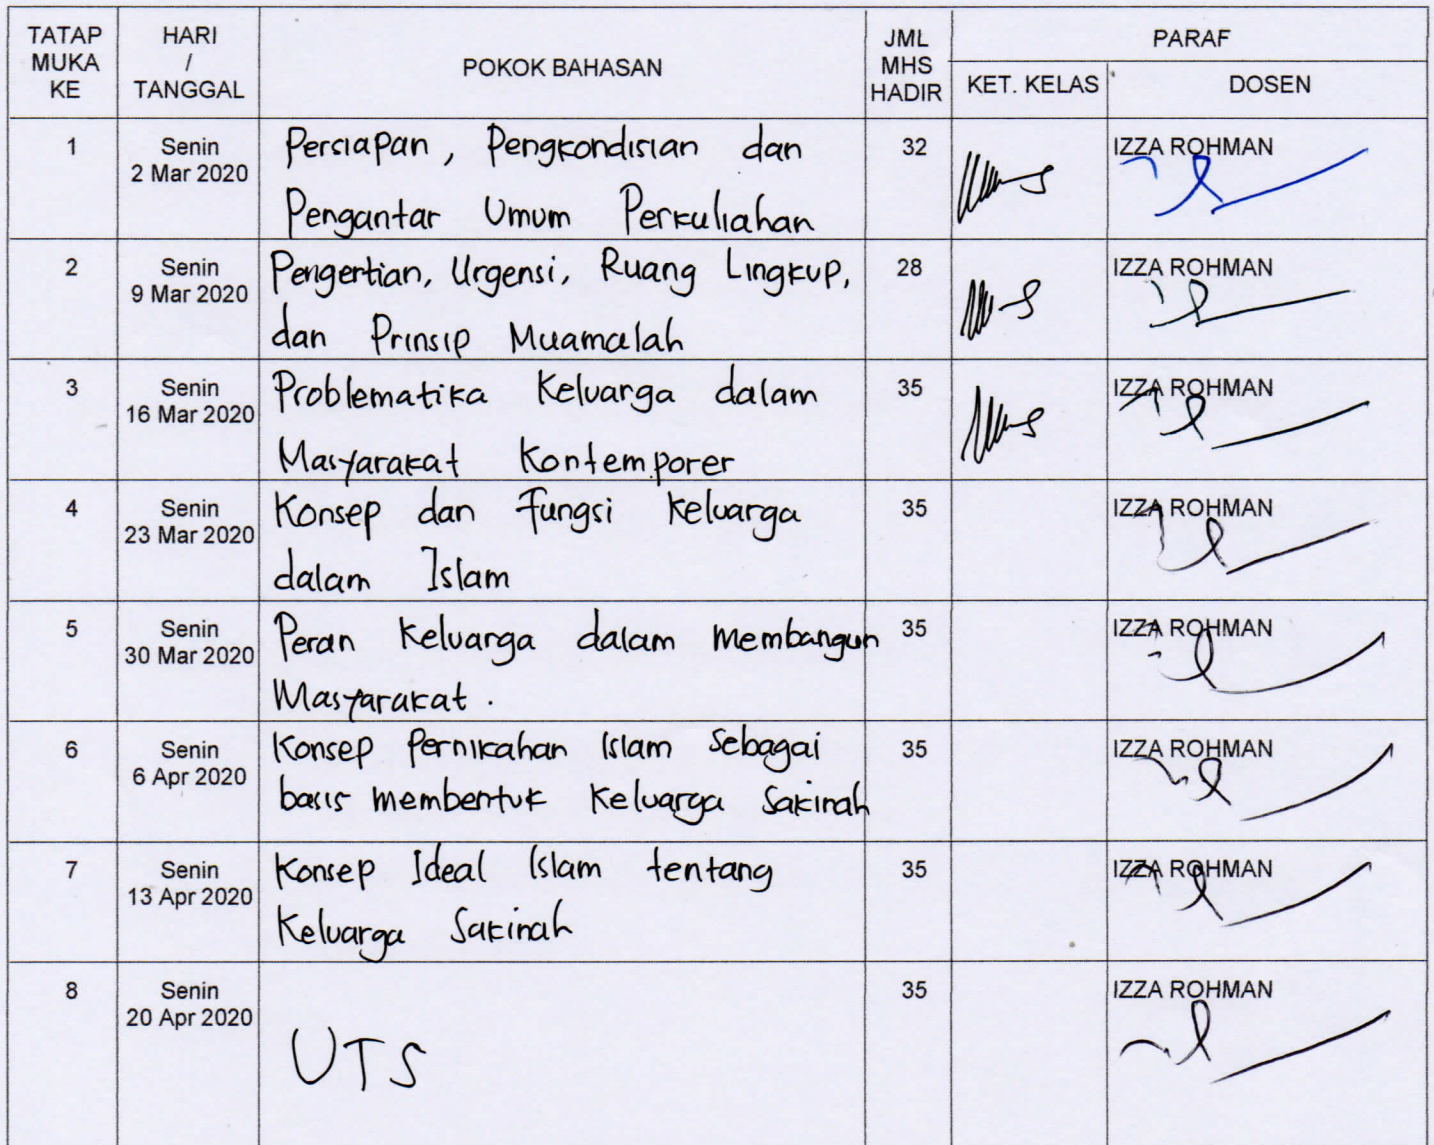 TATAP MUKA KE
HARI / TANGGAL
POKOK BAHASAN
JML MHS HADIR
PARAF
KET. KELAS
DOSEN
1
Senin
2 Mar 2020
Persiapan, Pengkondisian dan
Pengantar Umum Perkuliahan
32
IZZA ROHMAN
2
Senin
9 Mar 2020
Pengertian, Urgensi, Ruang Lingkup,
dan Prinsip Muamalah
28
IZZA ROHMAN
3
Senin
16 Mar 2020
Problematika Keluarga dalam
Masyarakat Kontemporer
35
IZZA ROHMAN
4
Senin
23 Mar 2020
Konsep dan Fungsi Keluarga
dalam Islam
35
IZZA ROHMAN
5
Senin
30 Mar 2020
Peran Keluarga dalam membangun
Masyarakat.
35
IZZA ROHMAN
6
Senin
6 Apr 2020
Konsep Pernikahan Islam Sebagai
basis membentuk Keluarga Sakinah
35
IZZA ROHMAN
7
Senin
13 Apr 2020
Konsep Ideal Islam tentang
Keluarga Sakinah
35
IZZA ROHMAN
8
Senin
20 Apr 2020
UTS
35
IZZA ROHMAN